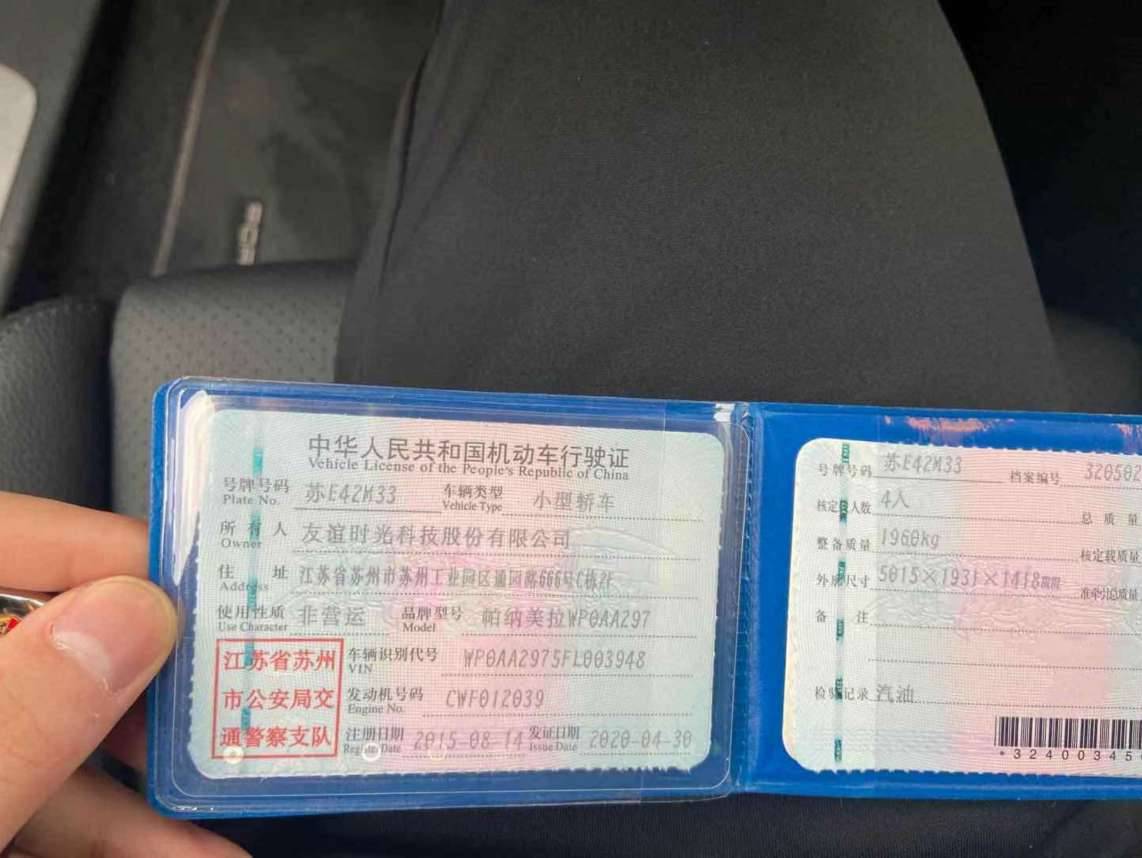 中华人民共和国机动车行驶证
Vehicle License of the People's Republic of China
号牌号码 苏E42M33 车辆类型 小型轿车
Plate No. Vehicle Type
所有人 友谊时光科技股份有限公司
Owner
住址 江苏省苏州市苏州工业园区通园路666号C栋2F
Address
使用性质 非营运 品牌型号 帕纳美拉WP0AA297
Use Character Model
江苏省苏州
市公安局交
通警察支队
车辆识别代号 WP0AA2975FL003948
VIN
发动机号码 CWF012039
Engine No.
注册日期 2015-08-14 发证日期 2020-04-30
Register Date Issue Date
号牌号码 苏E42M33 档案编号 320502
核定载人数 4人 总质量
整备质量 1960kg 核定载质量
外廓尺寸 5015×1931×1418mm 准牵引总质量
备注
检验记录 汽油
*32400345